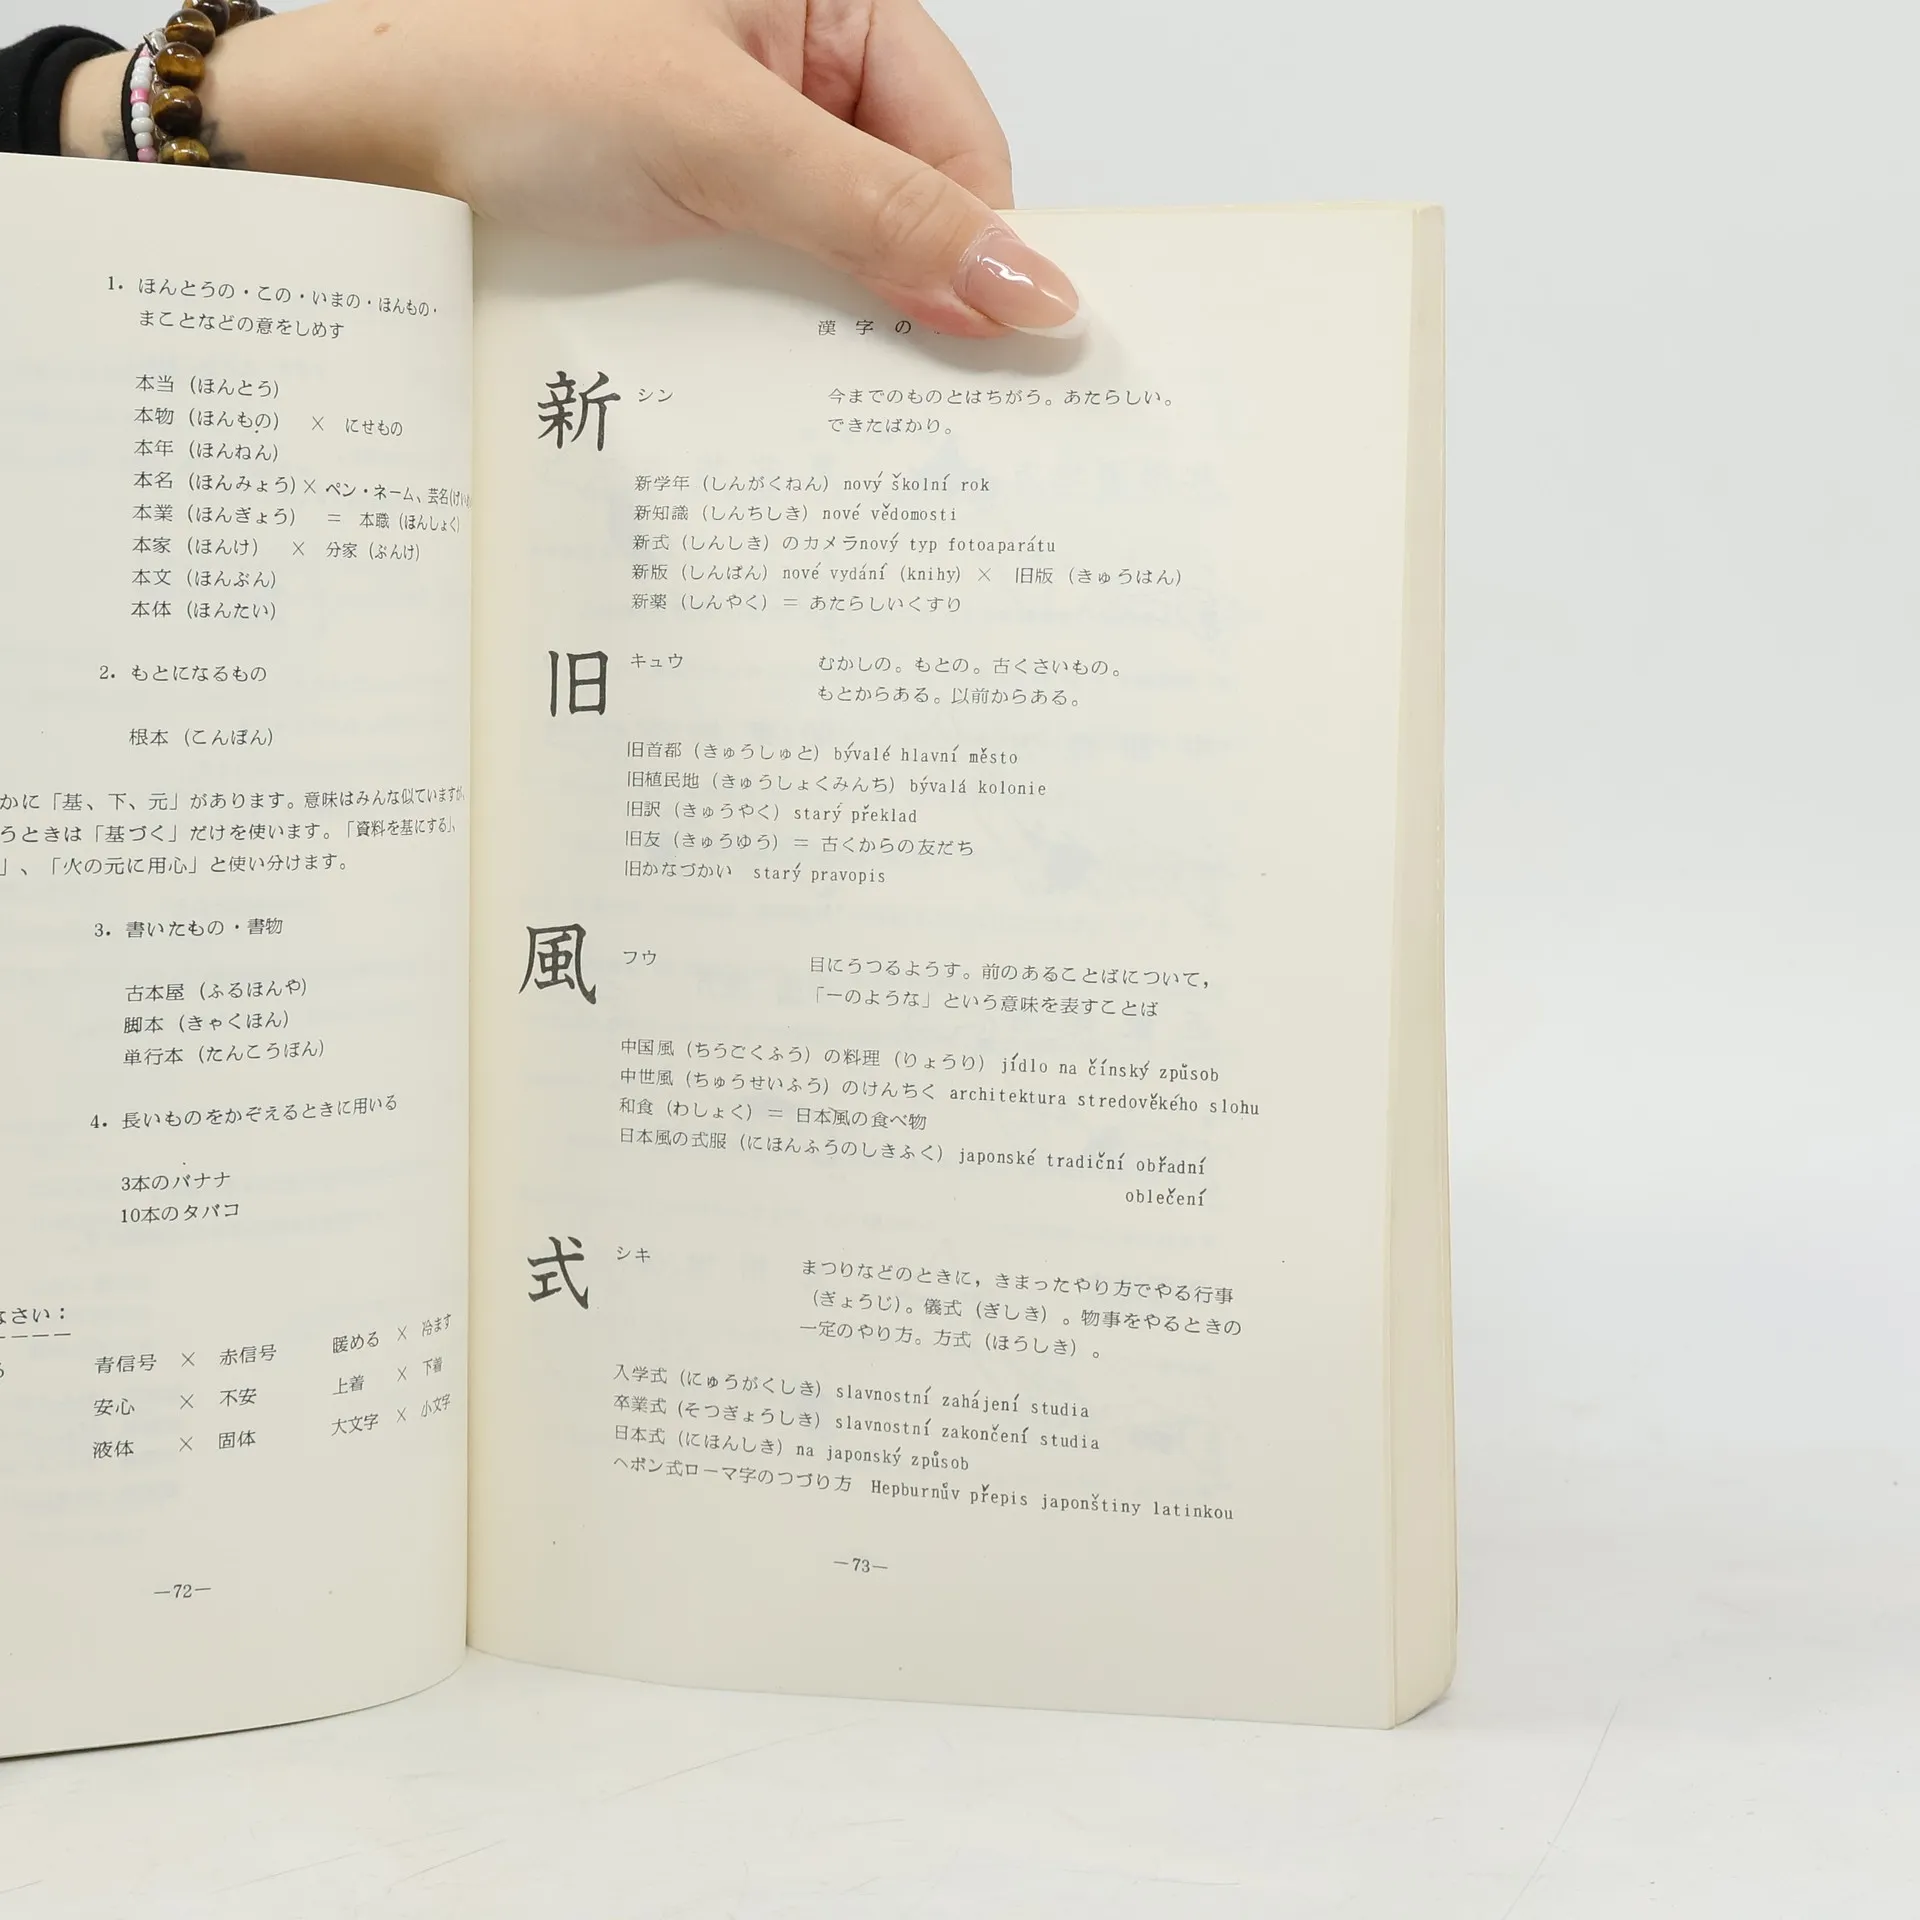 1. ほんとうの・この・いまの・ほんもの・
まことなどの意をしめす
本当 (ほんとう)
本物 (ほんもの) × にせもの
本年 (ほんねん)
本名 (ほんみょう) × ペン・ネーム、芸名
本業 (ほんぎょう) = 本職 (ほんしょく)
本家 (ほんけ) × 分家 (ぶんけ)
本文 (ほんぶん)
本体 (ほんたい)
2. もとになるもの
根本 (こんぽん)
かに「基、下、元」があります。意味はみんな似ていますが、
うときは「基づく」だけを使います。「資料を基にする」、
」、「火の元に用心」と使い分けます。
3. 書いたもの・書物
古本屋 (ふるほんや)
脚本 (きゃくほん)
単行本 (たんこうぼん)
4. 長いものをかぞえるときに用いる
3本のバナナ
10本のタバコ
なさい:
青信号 × 赤信号 暖める × 冷ます
安心 × 不安 上着 × 下着
液体 × 固体 大文字 × 小文字
—72—
漢字の
新 シン 今までのものとはちがう。あたらしい。
できたばかり。
新学年 (しんがくねん) nový školní rok
新知識 (しんちしき) nové vědomosti
新式 (しんしき) のカメラnový typ fotoaparátu
新版 (しんぱん) nové vydání (knihy) × 旧版 (きゅうはん)
新薬 (しんやく) = あたらしいくすり
旧 キュウ むかしの。もとの。古くさいもの。
もとからある。以前からある。
旧首都 (きゅうしゅと) bývalé hlavní město
旧植民地 (きゅうしょくみんち) bývalá kolonie
旧訳 (きゅうやく) starý překlad
旧友 (きゅうゆう) = 古くからの友だち
旧かなづかい starý pravopis
風 フウ 目にうつるようす。前のあることばについて,
「ーのような」という意味を表すことば
中国風 (ちうごくふう) の料理 (りょうり) jídlo na čínský způsob
中世風 (ちゅうせいふう) のけんちく architektura stredověkého slohu
和食 (わしょく) = 日本風の食べ物
日本風の式服 (にほんふうのしきふく) japonské tradiční obřadní
oblečení
式 シキ まつりなどのときに, きまったやり方でやる行事
(ぎょうじ)。儀式 (ぎしき) 。物事をやるときの
一定のやり方。方式 (ほうしき) 。
入学式 (にゅうがくしき) slavnostní zahájení studia
卒業式 (そつぎょうしき) slavnostní zakončení studia
日本式 (にほんしき) na japonský způsob
ヘボン式ローマ字のつづり方 Hepburnův přepis japonštiny latinkou
—73—